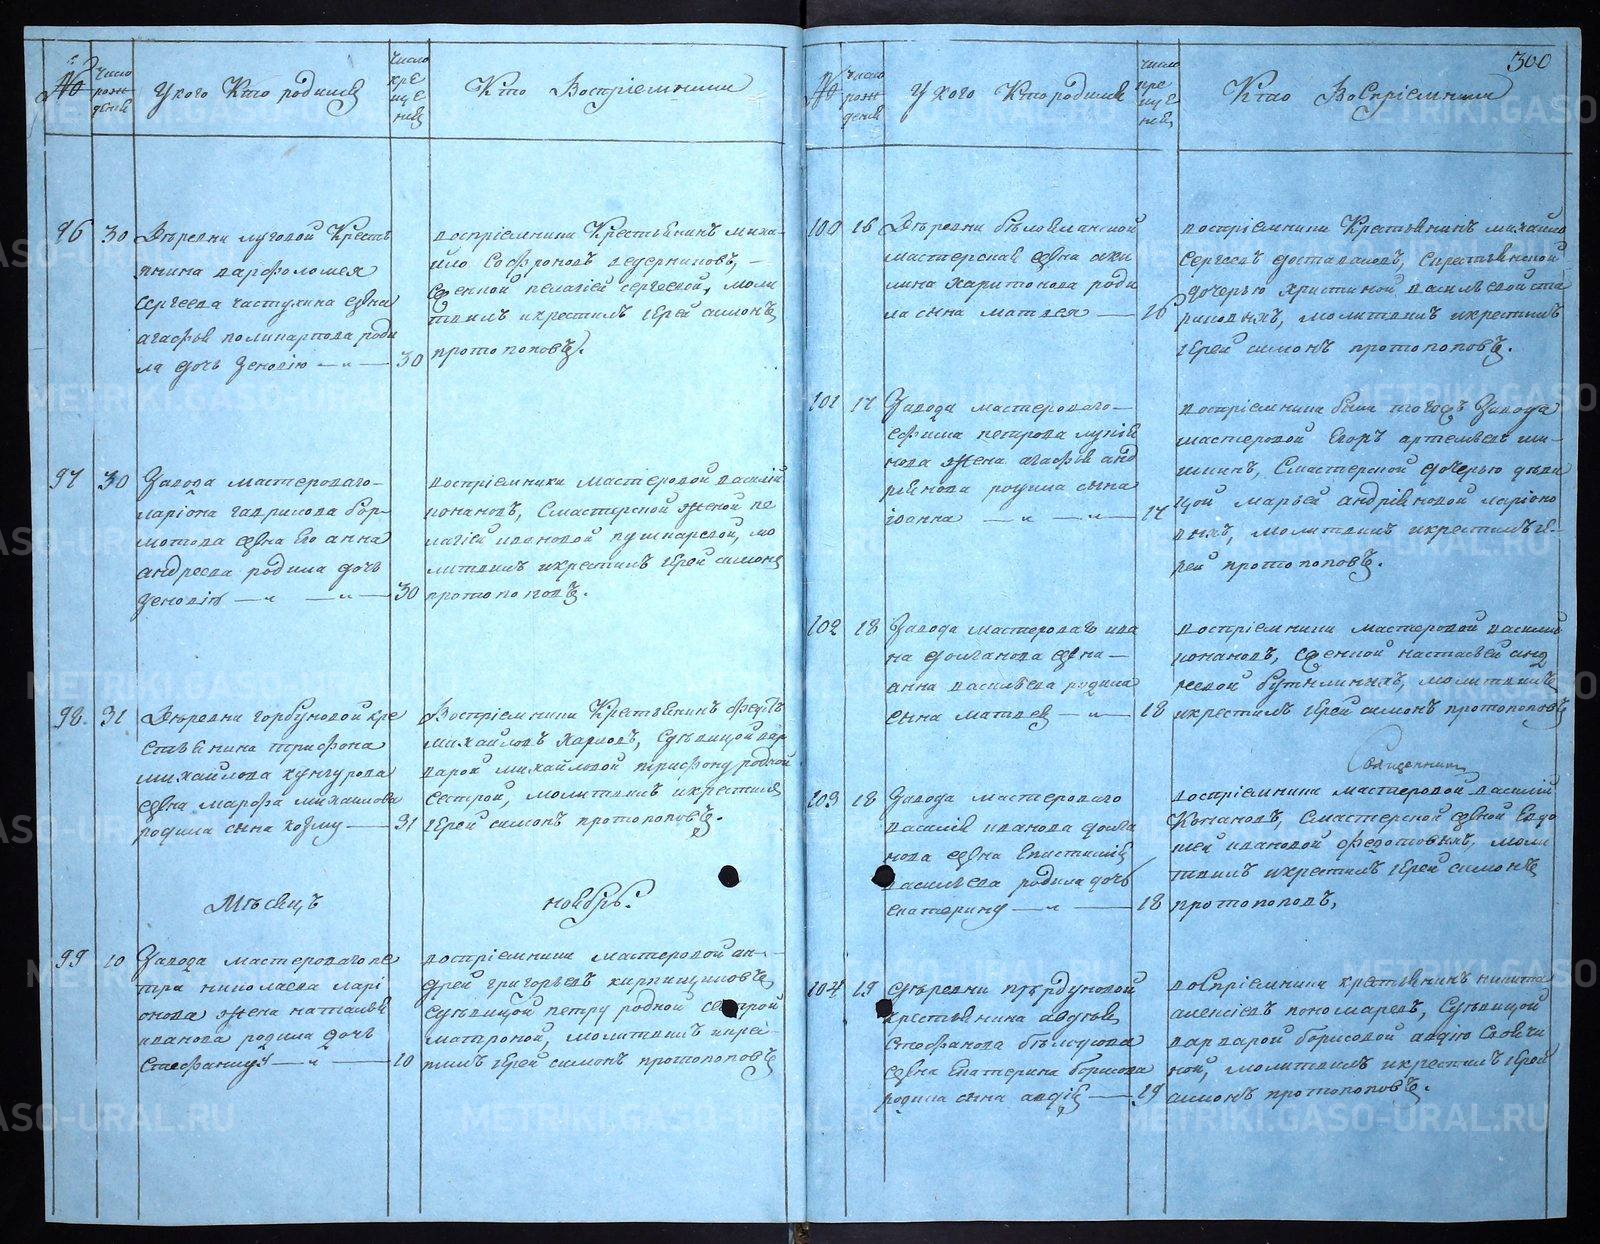 №
Число рождения
У кого Кто родился
Число крещения
Кто Восприемники
96
30
Деревни луговой Кресть
янина варфоломея
сергеева частухина жена
агафья поликарпова роди
ла дочь зеновiю
30
восприемники Крестьянинъ миха-
ило Софроновъ ведерниковъ,
женкой пелагiей сергеевой, моли
твилъ икрестилъ iерей симонъ
протопоповъ.
97
30
Завода мастероваго
ларiона гаврилова бор-
мотова жена Его анна
андреева родила дочь
зеновiю
30
восприемники мастеровой василiй
конановъ, Смастерской женой пе
лагiей ивановой пушкаревой, мо
литвилъ икрестилъ iерей симонъ
протопоповъ.
98.
31
Деревни горбуновой кре
стьянина трифона
михайлова кунгурова
жена марфа михаилова
родила сына козму
31
Восприемники Крестьянинъ
михайловъ Карповъ, Сдевицой вар
варой михайловой трифону родной
сестрой, молитвилъ икрестилъ
iерей симонъ протопоповъ.
Месяцъ
ноябрь.
99
10
Завода мастероваго пе
тра николаева ларi
онова жена наталья
иванова родила дочь
стефаниду
10
восприемники мастеровой ан-
дрей григорьевъ кирпищиковъ
Сдевицой петру родной сестрой
матроной, молитвилъ икрес-
тилъ iерей симонъ протопоповъ
300
№
Число рождения
У кого Кто родился
Число крещения
Кто Восприемники
100
16
Деревни
мастерская жена аки
лина харитонова роди
ла сына матвея
16
восприемники Крестьянинъ михайло
Сергеевъ Скрестьянской
дочерью христиной васильевой ста
риковыхъ, молитвилъ икрестилъ
iерей симонъ протопоповъ.
101
17
Завода мастероваго
ефима петрова
жена агафья анд
рiянова родила сына
iоанна
17
восприемники были тогожъ Завода
мастеровой Егоръ артемьевъ ши-
шкинъ, Смастерской дочерью деви
цой марьей андрiяновой ларiоно
выхъ, молитвилъ икрестилъ iе-
рей протопоповъ.
102
18
Завода мастероваго ива
на долганова жена
анна васильева родила
сына матвея
18
восприемники мастеровой василiй
конановъ, женкой настасьей анд
реевой молитвилъ
икрестилъ iерей симонъ протопоповъ
Священникъ
103
18
Завода мастероваго
василья иванова долга
нова жена Епистимiя
васильева родила дочь
екатерину
18
восприемники мастеровой василiй
Конановъ, Смастерской женой Евдо
кiей ивановой федотовыхъ, моли
твилъ икрестилъ iерей симонъ
протопоповъ,
104
19
крестьянина авдея
стефанова белоусова
жена Екатерина борисова
родила сына авдiя
19
восприемники крестьянинъ никита
алексiевъ пономаревъ, Сдевицой
варварой борисовой
молитвилъ икрестилъ iерей
симонъ протопоповъ.
METRIKI.GASO-URAL.RU